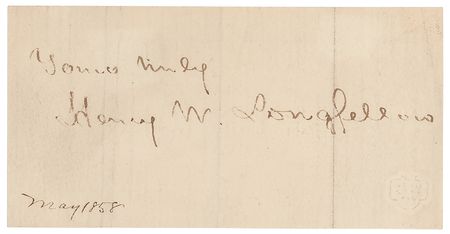 Yours truly
Henry W. Longfellow
May 1858